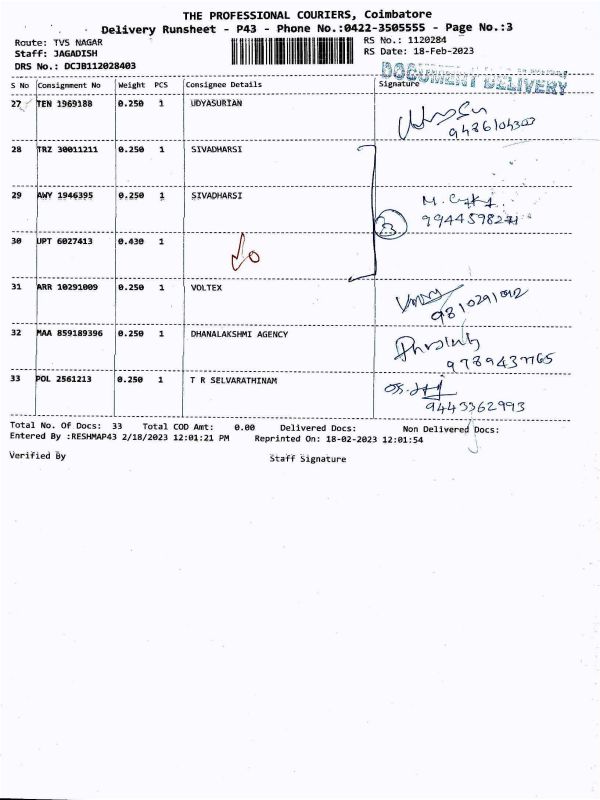 THE PROFESSIONAL COURIERS, Coimbatore
Delivery Runsheet - P43 - Phone No.:0422-3505555 - Page No.:3
Route: TVS NAGAR RS No.: 1120284
Staff: JAGADISH RS Date: 18-Feb-2023
DRS No.: DCJB112028403
DOCUMENT DELIVERY
S No Consignment No Weight PCS Consignee Details Signature
27 TEN 1969188 0.250 1 UDYASURIAN
28 TRZ 30011211 0.250 1 SIVADHARSI
29 AWY 1946395 0.250 1 SIVADHARSI
30 UPT 6027413 0.430 1
31 ARR 10291009 0.250 1 VOLTEX
32 MAA 859189396 0.250 1 DHANALAKSHMI AGENCY
9789437765
33 POL 2561213 0.250 1 T R SELVARATHINAM
9443362993
Total No. Of Docs: 33 Total COD Amt: 0.00 Delivered Docs: Non Delivered Docs:
Entered By :RESHMAP43 2/18/2023 12:01:21 PM Reprinted On: 18-02-2023 12:01:54
Verified By Staff Signature